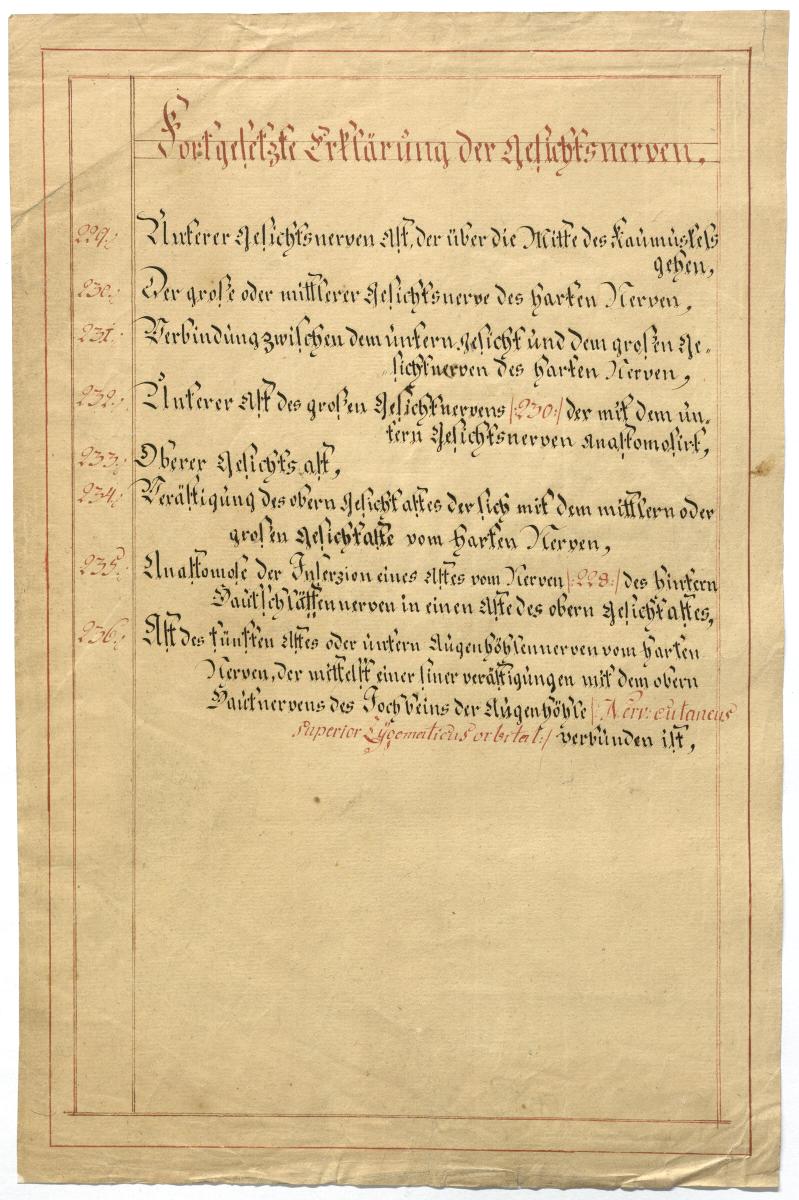 Fortgesetzte Erklärung der Gesichtsnerven.
229./ Unterer Gesichtsnerven Ast, der über die Mitte des Kaumuskels
gehen,
230./ Der große oder mittlerer Gesichtsnerve des harten Nerven,
231./ Verbindung zwischen dem untern Gesicht und dem großen Ge„
„sichtnerven des harten Nerven,
232./ Unterer Ast des großen Gesichtnervens /:230:/ der mit dem un„
tern Gesichtsnerven anastomosirt,
233./ Oberer Gesichts ast,
234./ Verästigung des obern Gesicht astes der sich mit dem mittlern oder
großen Gesicht aste vom harten Nerven,
235./ Anastomose der Inserzion eines Astes vom Nerven /:228:/ des hintern
Hautschläffennerven in einen Aste des obern Gesicht astes,
236./ Ast des fünften Astes oder untern Augenhöhlennerven vom harten
Nerven, der mittelst einer siner verästigungen mit dem obern
Hautnervens des Jochbeins der Augenhöhle /: Nerv: cutaneus
superior Zygomaticus orbital:/ verbunden ist,